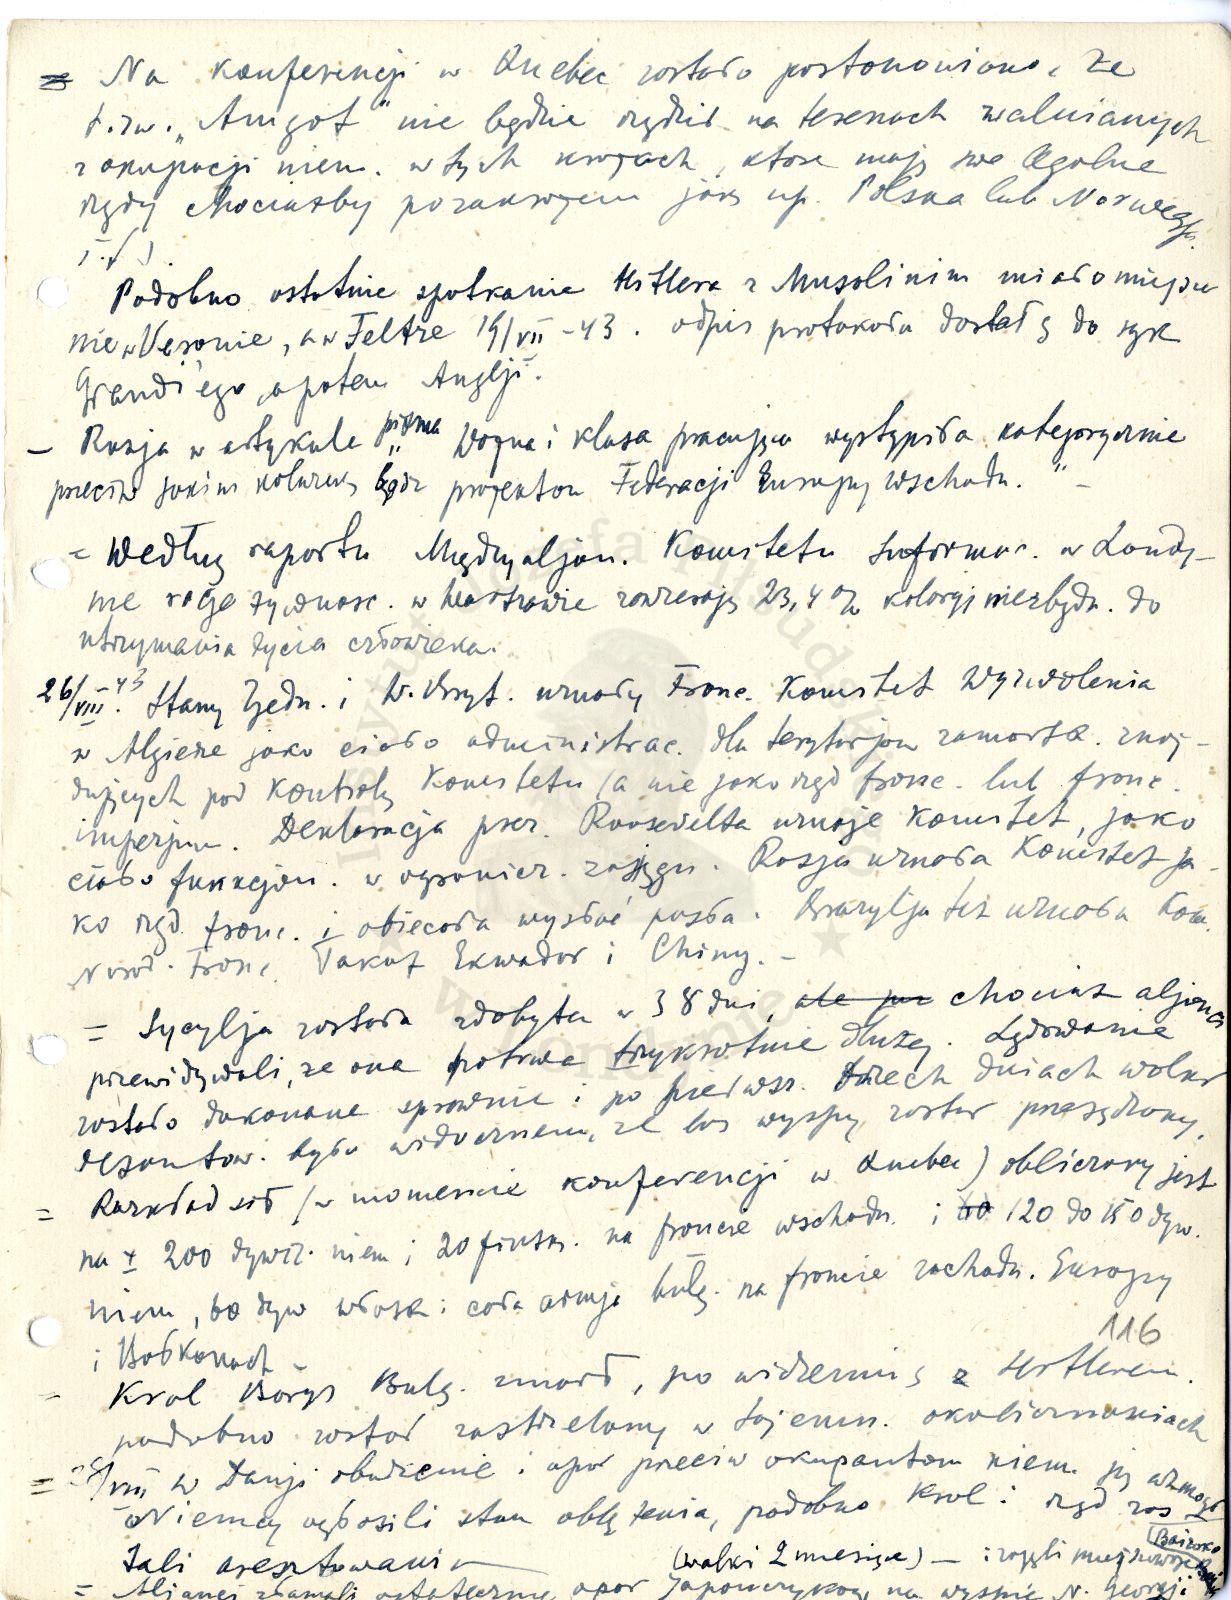 = Na konferencji w Quebec została postanowiono, że
t. zw. „Amgot" nie będzie rządził na terenach zwalnianych
z okupacji niem. w tych krajach, które mają swe legalne
rządy chociażby poza krajem jak np. Polska lub Norwegja
Podobno ostatnie spotkanie Hitlera z Musolinim miało miejsce
nie w Veronie, a w Feltre 19/VII-43. odpis protokołu dostał się do rąk
Grandi'ego, a potem Anglji.
– Rosja w artykule pisma „Wojna i klasa pracująca wystąpiła kategorycznie
przeciw jakim kolwiek bądź projektom Federacji Europy wschodn." –
= Według raportu Międzyaljan. Komitetu Informac. w Londy-
nie racje żywnośc. w zawierają 23,4 % kaloryj niezbędn. do
utrzymania życia człowieka.
26/VIII.43 Stany Zjedn. i W. Bryt. uznały Franc. Komitet Wyzwolenia
w Algierze jako ciało administrac. dla terytorjów zamorsk. znaj-
dujących pod kontrolą Komitetu (a nie jako rząd franc. lub franc.
imperjum. Deklaracja prez. Roosevelta uznaje Komitet, jako
ciało funkcjon. w ogranicz. zasięgu. Rosja uznała Komitet ja-
ko rząd franc. i obiecała wysłać posła. Brazylja też uznała Kom.
Narod. Franc. Takoż Ekwador i Chiny. –
= Sycylja została zdobyta w 38 dni, ale już chociaż aljanci
przewidywali, że ona potrwa trzykrotnie dłużej. Lądowanie
zostało dokonane sprawnie i po pierwsz. trzech dniach walk
desantow. było widocznem, że los wyspy został przesądzony.
= Rozkład sił (w momencie konferencji w Quebec) obliczony jest
na ± 200 dywiz. niem i 20 fińsk. na froncie wschodn. i 120 do 150 dyw.
niem, dyw włosk i cała armja bułg. na froncie zachodn. Europy
i Bałkanach –
116
– Krol Borys Bułg. zmarł, po widzeniu się z Hitlerem.
podobno został zastrzelony w tajemn. okolicznościach
= 28/VIII w Danji oburzenie i opór przeciw okupantom niem. się wzmogł
Niemcy ogłosili stan oblężenia, podobno Krol i rząd zos-
tali aresztowani –
(walki 2 miesiące) – i zajęli miejscowość Bairoko
= Alianci złamali ostatecznie opór Japończyków na wyspie N. Georgji